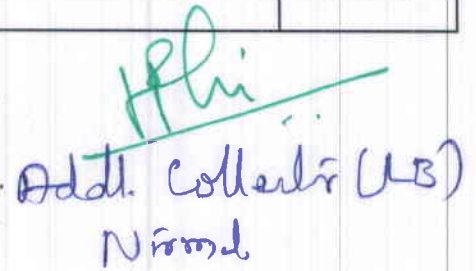 Addl. Collector (LB)
Nirmal